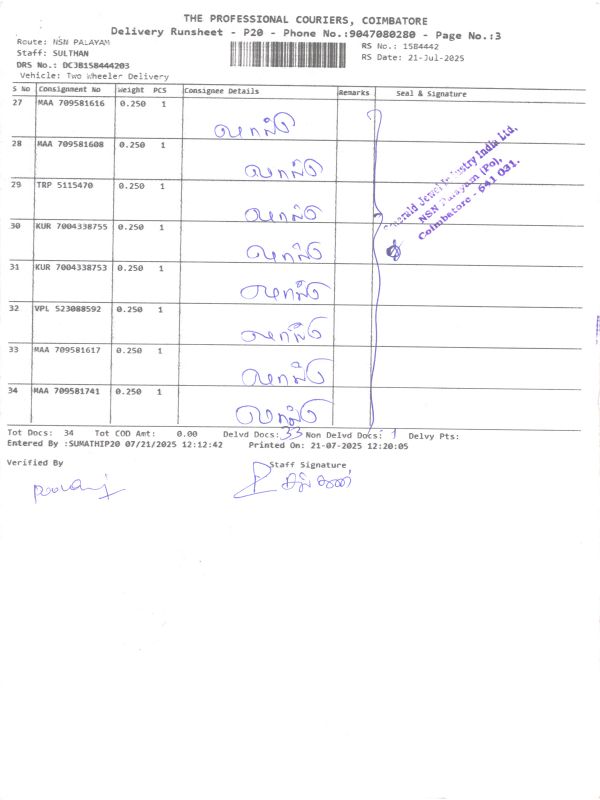 THE PROFESSIONAL COURIERS, COIMBATORE
Delivery Runsheet - P20 - Phone No.:9047080280 - Page No.:3
Route: NSN PALAYAM
RS No.: 1584442
Staff: SULTHAN
RS Date: 21-Jul-2025
DRS No.: DCJB158444203
Vehicle: Two Wheeler Delivery
S No Consignment No Weight PCS Consignee Details Remarks Seal & Signature
27 MAA 709581616 0.250 1
28 MAA 709581608 0.250 1
29 TRP 5115470 0.250 1
30 KUR 7004338755 0.250 1
31 KUR 7004338753 0.250 1
32 VPL 523088592 0.250 1
33 MAA 709581617 0.250 1
34 MAA 709581741 0.250 1
Emerald Jewel Industry India Ltd,
NSN Palayam (Po),
Coimbatore - 641 031.
Tot Docs: 34 Tot COD Amt: 0.00 Delvd Docs: 33 Non Delvd Docs: 1 Delvy Pts:
Entered By :SUMATHIP20 07/21/2025 12:12:42 Printed On: 21-07-2025 12:20:05
Verified By Staff Signature